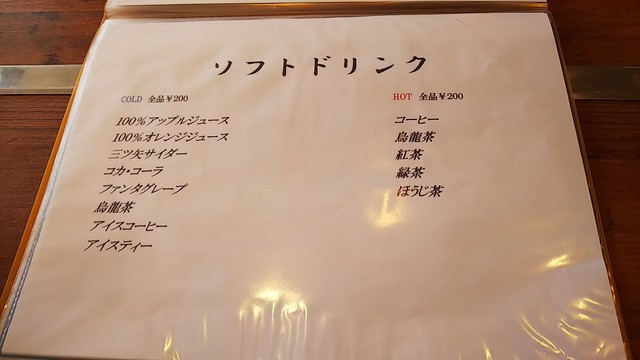 ソフトドリンク
COLD 全品￥200
100%アップルジュース
100%オレンジジュース
三ツ矢サイダー
コカ・コーラ
ファンタグレープ
烏龍茶
アイスコーヒー
アイスティー
HOT 全品￥200
コーヒー
烏龍茶
紅茶
緑茶
ほうじ茶